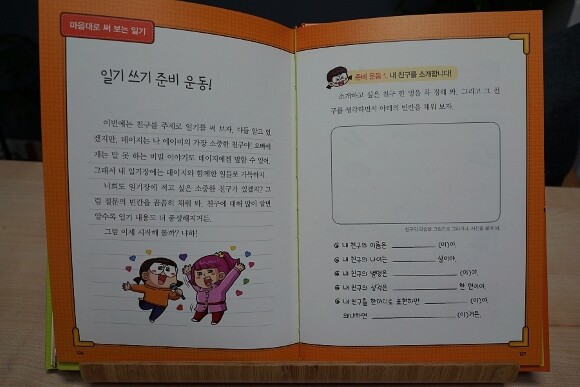 마음대로 써 보는 일기
일기 쓰기 준비 운동!
이번에는 친구를 주제로 일기를 써 보자. 다들 알고 있
겠지만, 데이지는 나 에이미의 가장 소중한 친구야! 오빠에
게는 말 못 하는 비밀 이야기도 데이지에겐 말할 수 있어.
그래서 내 일기장에는 데이지와 함께한 일들로 가득하지.
너희도 일기장에 적고 싶은 소중한 친구가 있겠지? 그
럼 질문의 빈칸을 꼼꼼히 채워 봐. 친구에 대해 많이 알면
알수록 일기 내용도 더 풍성해지거든.
그럼 이제 시작해 볼까? 냐하!
126
준비 운동 1. 내 친구를 소개합니다!
소개하고 싶은 친구 한 명을 꼭 정해 봐. 그리고 그 친
구를 생각하면서 아래의 빈칸을 채워 보자.
친구의 모습을 그림으로 그리거나, 사진을 붙여 봐.
내 친구의 이름은 (이)야.
내 친구의 나이는 살이야.
내 친구의 별명은 (이)야.
내 친구의 성격은 한 편이야.
내 친구를 한마디로 표현하면 (이)야.
왜냐하면 (이)거든.
127